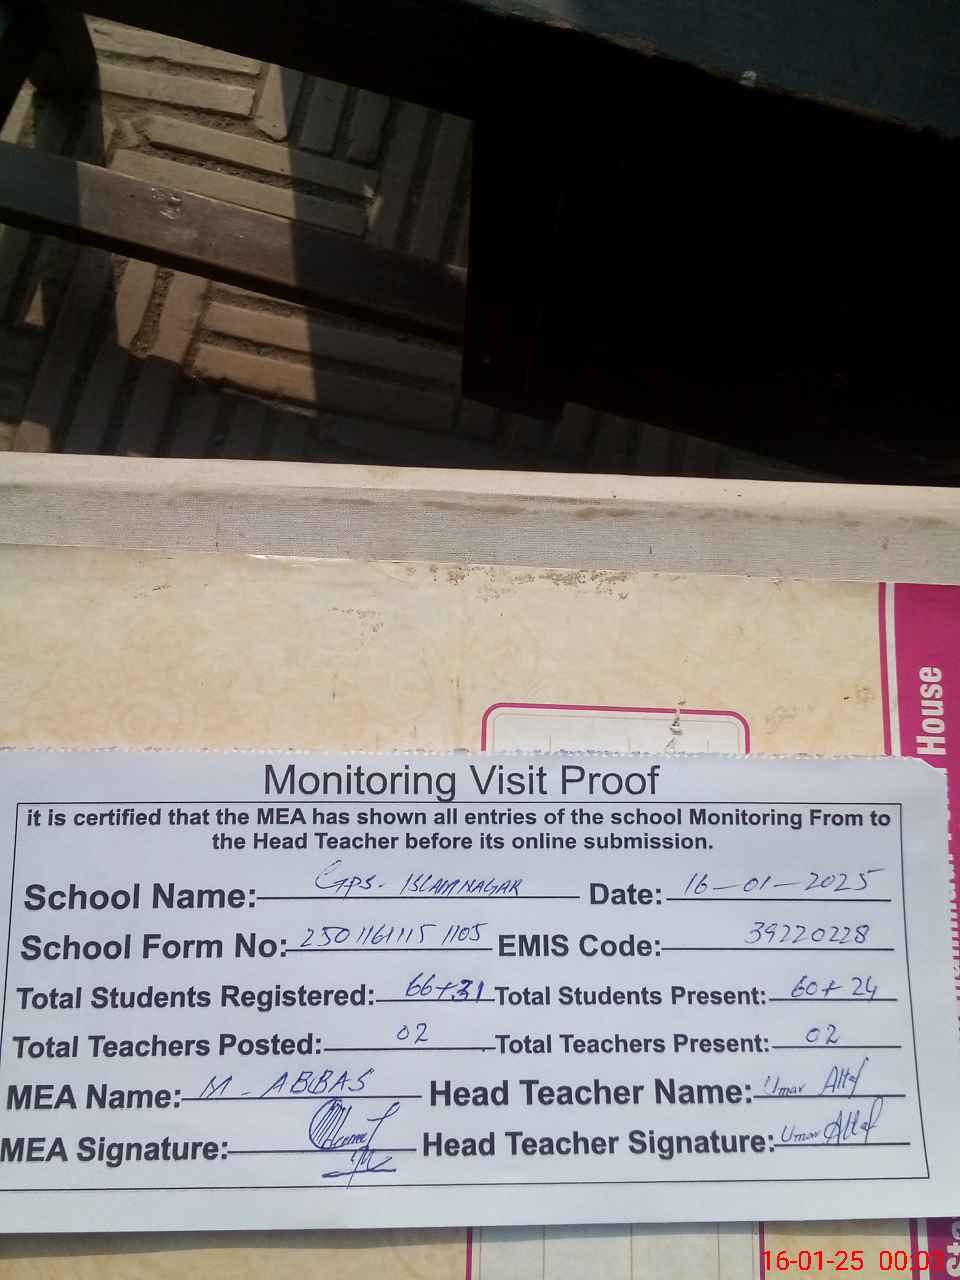 House
Monitoring Visit Proof
it is certified that the MEA has shown all entries of the school Monitoring From to
the Head Teacher before its online submission.
School Name: GPS. ISLAMNAGAR Date: 16-01-2025
School Form No: 2501161115 1105 EMIS Code: 39220228
Total Students Registered: 66+31 Total Students Present: 60+24
Total Teachers Posted: 02 Total Teachers Present: 02
MEA Name: M-ABBAS Head Teacher Name: Umar Altaf
MEA Signature: Head Teacher Signature: Umar Altaf
16-01-25